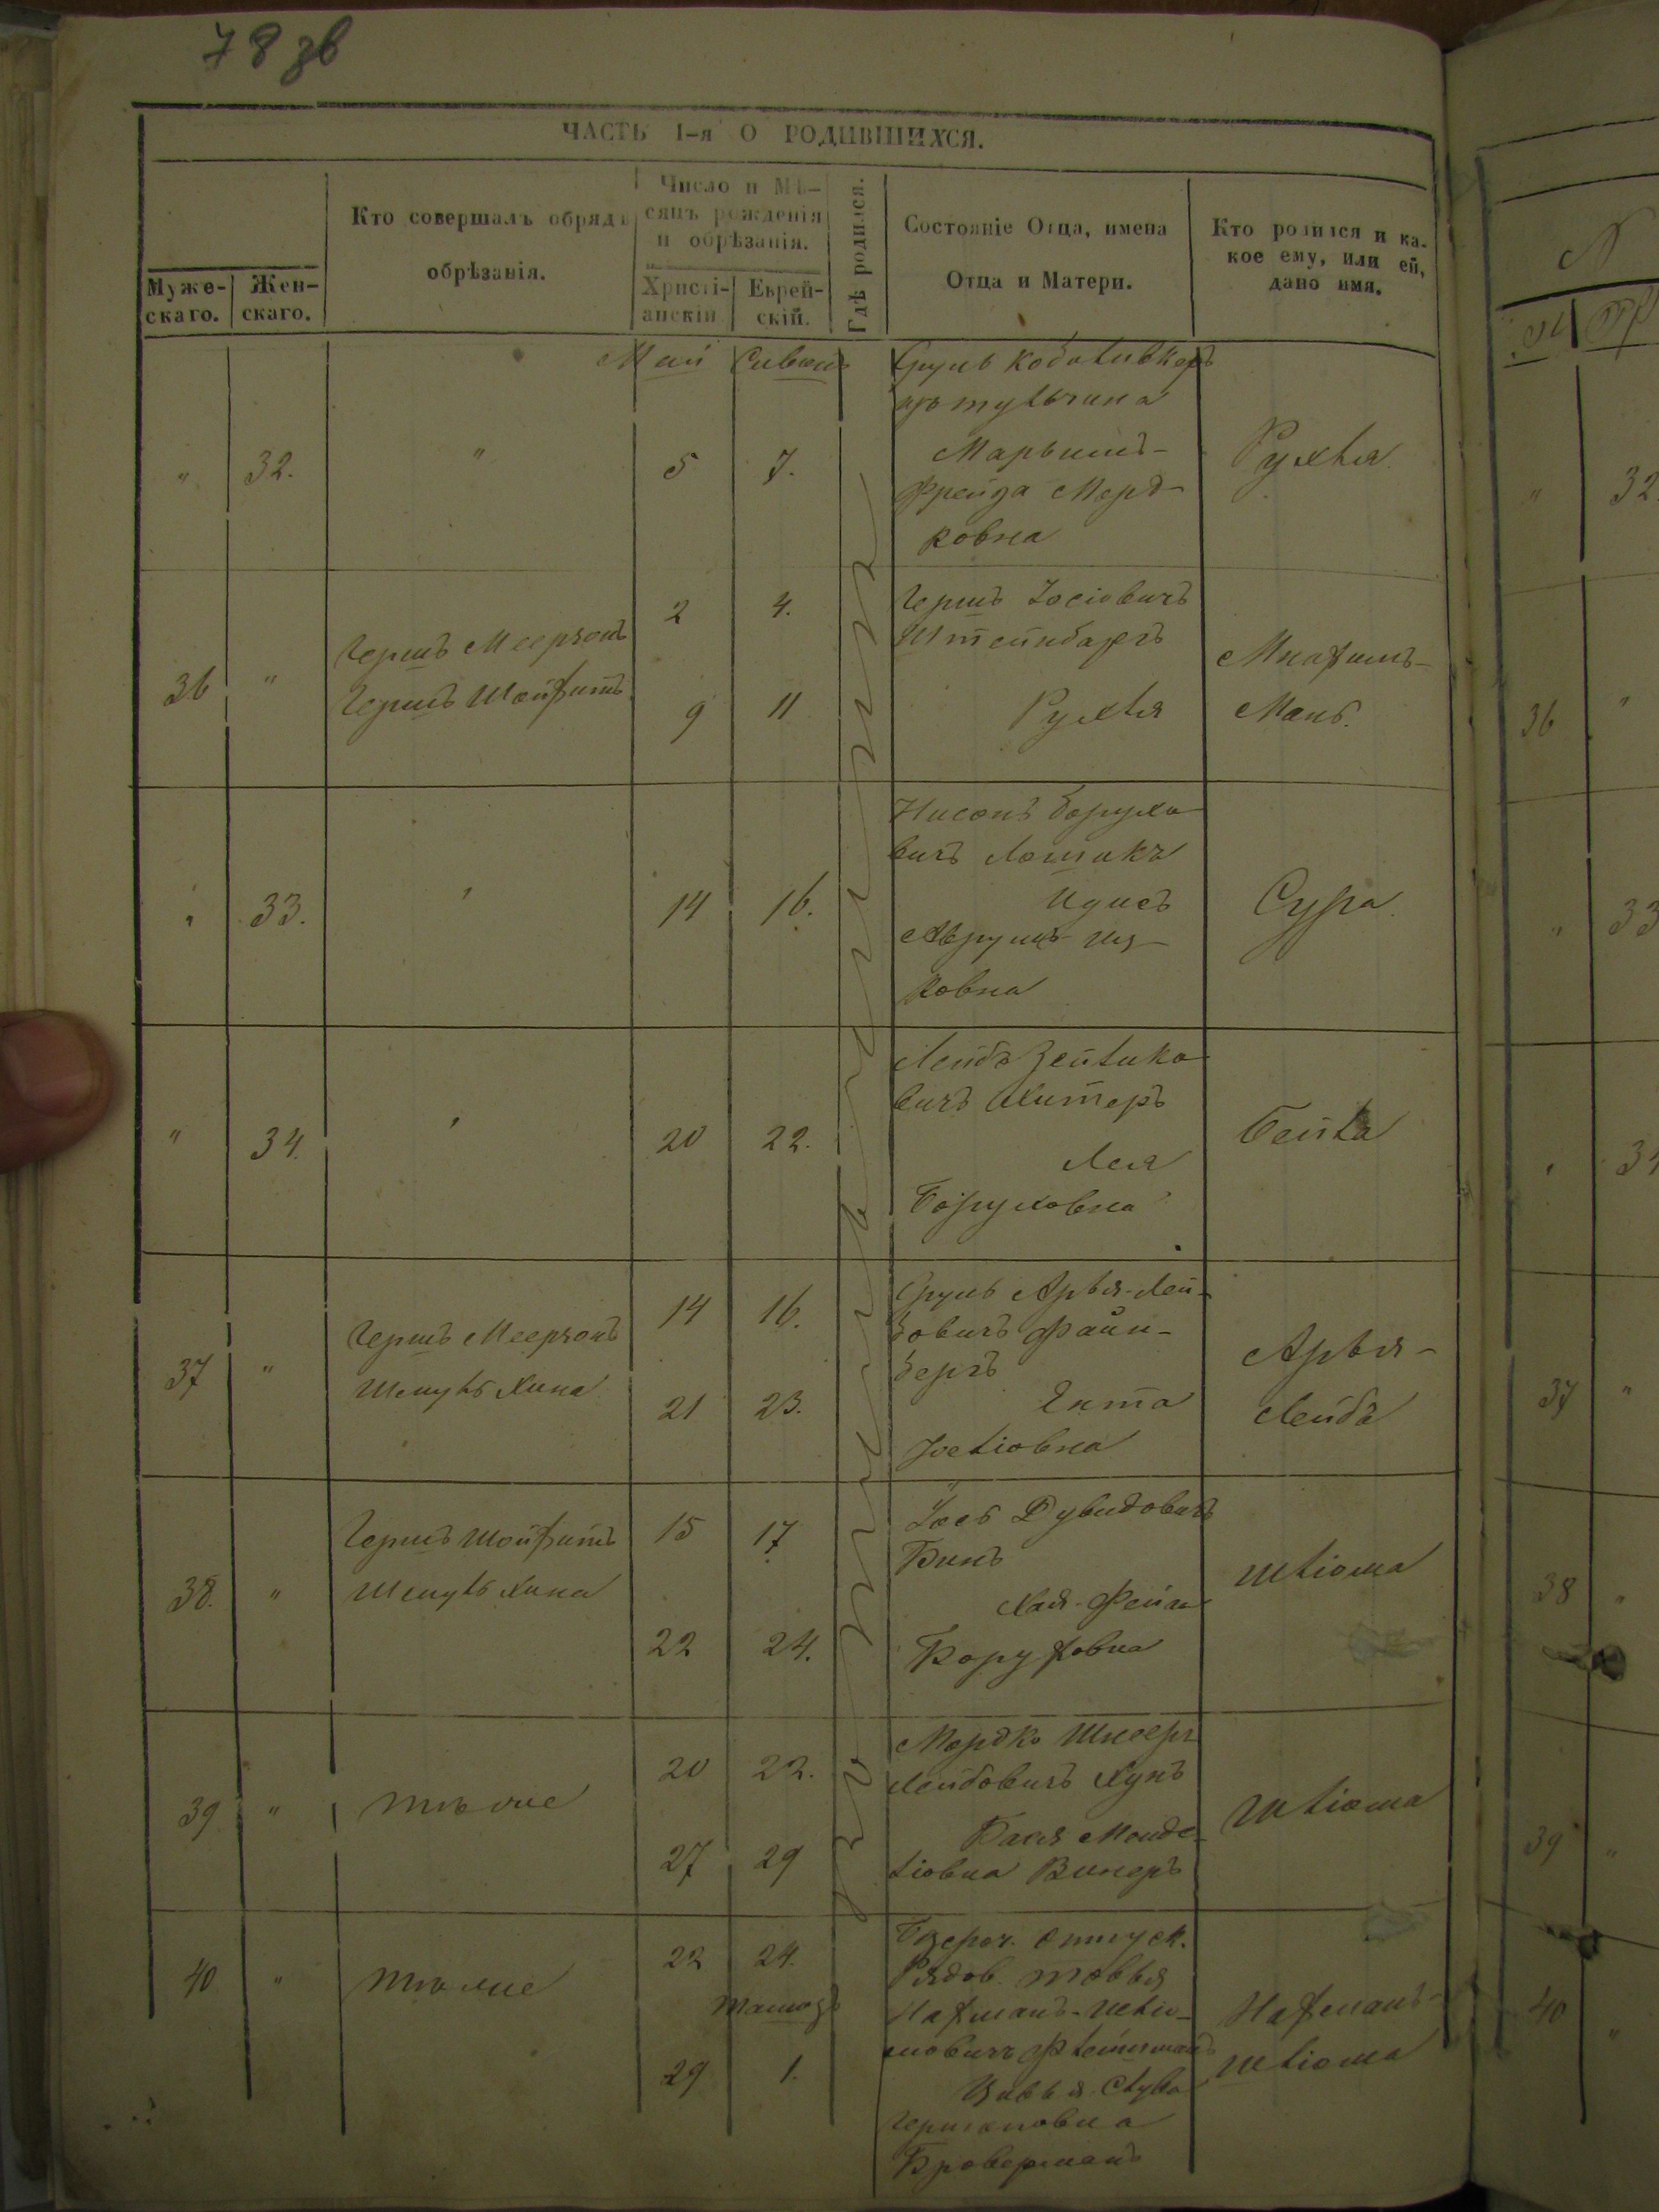 78 зв
ЧАСТЬ I-я О РОДИВШИХСЯ.
Муже-
скаго.
Жен-
скаго.
Кто совершалъ обрядъ
обрѣзанія.
Число и Мѣ-
сяцъ рожденія
и обрѣзанія.
Христі-
анскій
Еврей-
скій.
Гдѣ родился.
Состояніе Отца, имена
Отца и Матери.
Кто родился и ка-
кое ему, или ей,
дано имя.
Май Сиванъ
" 32. " 5 7.
Сруль Кобыливкеръ
изъ тульчина
Марьимъ-
Фрейда Морд-
ковна
Рухля
36 "
Гершъ Меерзонъ
Гершъ Шойхитъ
2 4.
9 11
Гершъ Іосіовичъ
Штейнбаргъ
Рухля
Мнахимъ-
Мань.
" 33. " 14 16.
Нисонъ Борухо
вичъ Лошакъ
Идисъ
Аврумъ-Иц-
ковна
Сура
" 34. " 20 22.
Лейба Зейлико
вичъ Хитеръ
Лея
Боруховна
Бейла
37 "
Гершъ Меерзонъ
Шмуль Хина
14 16.
21 23.
Сруль Арья-Лей-
бовичъ Файн-
бергъ
Ента
Іоеліовна
Арья-
Лейба
38. "
Гершъ Шойхитъ
Шмуль Хина
15 17
22 24.
Іосъ Дувидовичъ
Бинъ
Хая-Фейга
Боруховна
Шліома
39 " тѣ же
20 22.
27 29
Мордко Шнееръ
Лейбовичъ Хунъ
Бася Монде-
ліовна Винеръ
Шліома
40 " тѣ же
22 24.
Тамозъ
29 1.
Безсроч. отпуск.
Рядов. товья
Нахманъ-Шліо-
мовичъ Флейшманъ
Цивья-Слува
Гершковна
Броверманъ
Нахманъ-
Шліома
" 32
36 "
" 33
" 34
37 "
38 "
39 "
40 "